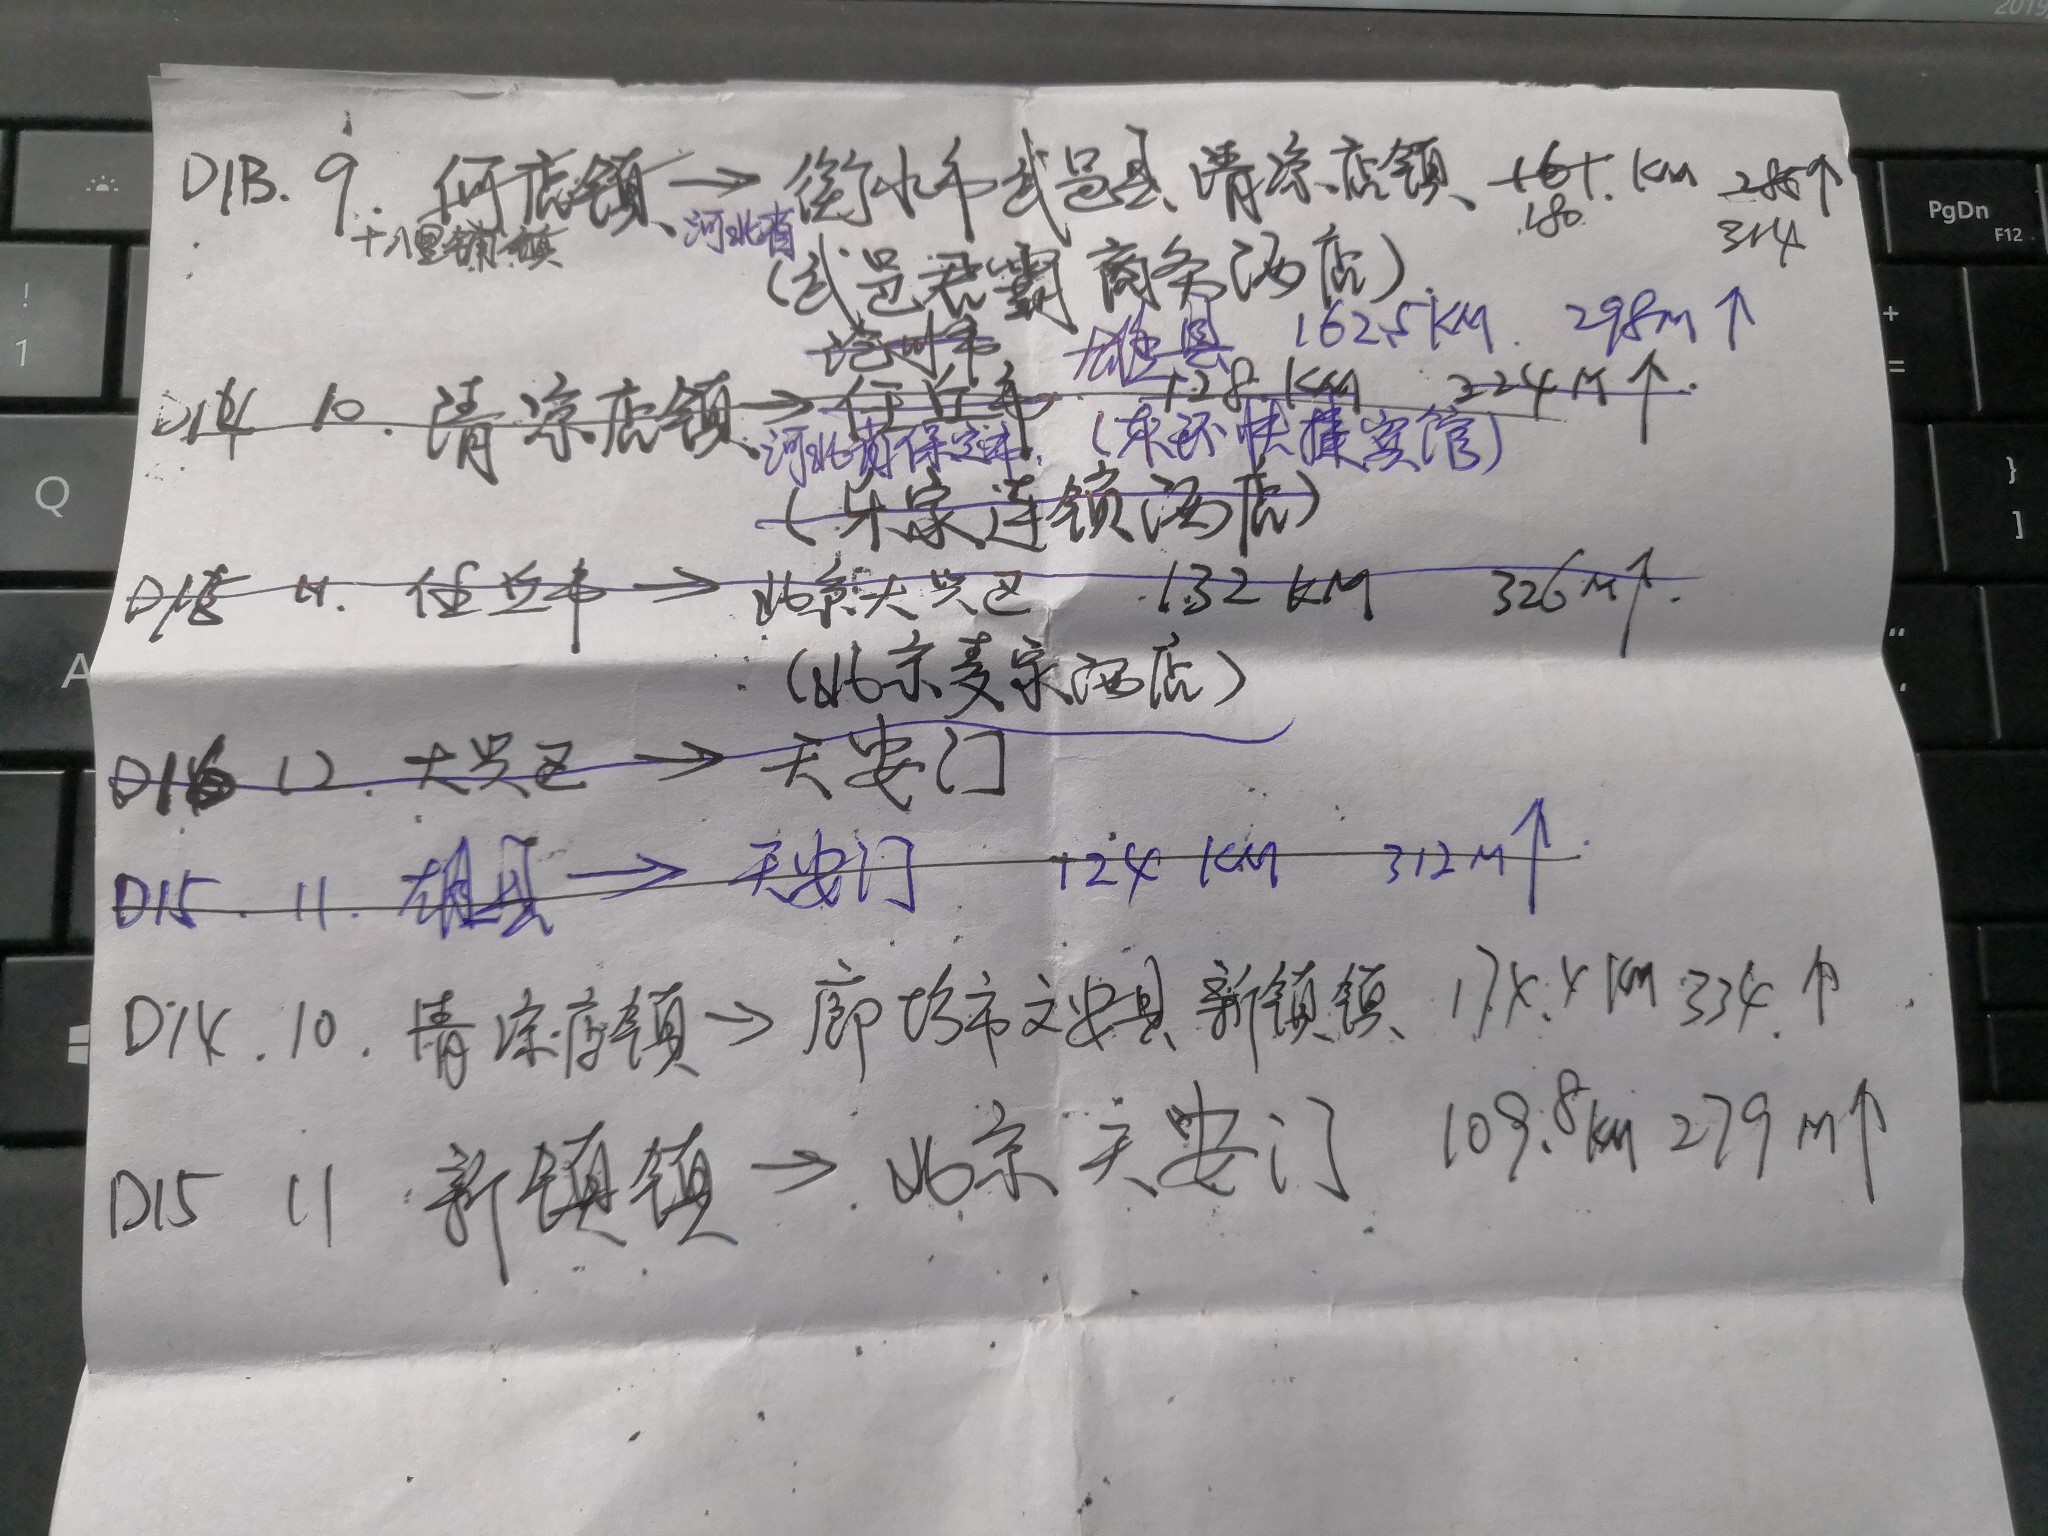 2019
D13. 9. 何店镇 → 衡水市武邑县清凉店镇 161. KM 286↑
十八里铺镇 河北省 180. 314
(武邑君霸商务酒店)
沧州市 雄县 162.5KM. 298M↑
D14 10. 清凉店镇 → 任丘市 128. KM 224M↑.
河北省保定市. (东环快捷宾馆)
(乐家连锁酒店)
D15 11. 任丘市 → 北京大兴区 132 KM 326M↑.
(北京麦家酒店)
D16 12. 大兴区 → 天安门
D15. 11. 雄县 → 天安门 124 KM 312M↑.
D14. 10. 清凉店镇 → 廊坊市文安县新镇镇 174.4KM 334.↑
D15 11 新镇镇 → 北京天安门 109.8KM 279M↑
PgDn
F12
!
1
+
=
Q
}
]
A
"
'